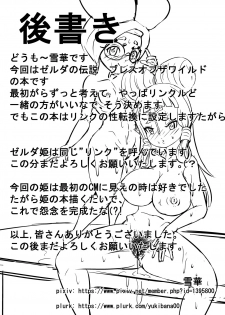 後書き
どうも～雪華です
今回はゼルダの伝説 ブレスオブザワイルド
の本です
最初がらずっと考えて、やっぱリンクルど
一緒の方がいいなで、そう決めます
でもこの本はリンクの性転換に設定しますたがら
ゼルダ姫は同じ"リンク"を呼んでいます
この分まだよろしくお願いします。(?)
今回の姫は最初のCMに見えの時は好きでした
たがら姫の本描くたいで、
これで怨念を完成たな(?!
以上,皆さんありがとうございます。
この後まだよろしくお願いいたします。
雪華
pixiv: https://www.pixiv.net/member.php?id=1395800
plurk: http://www.plurk.com/yukibana00